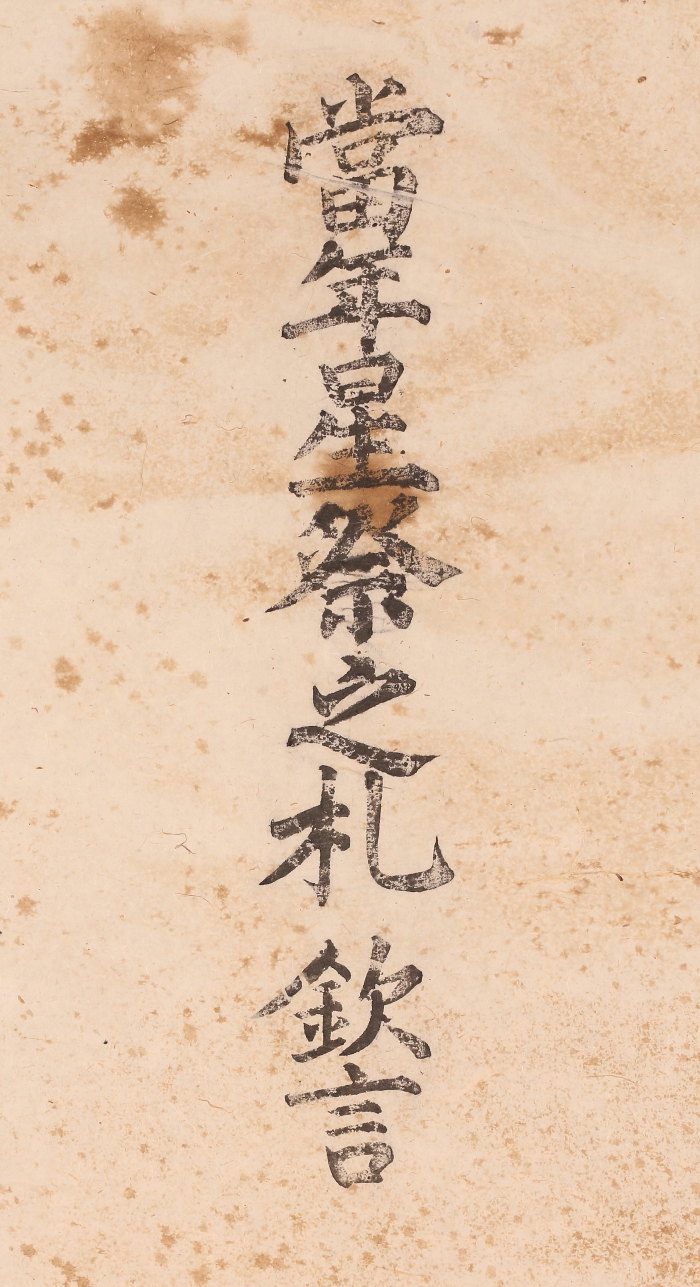 當年星祭之札 欽言